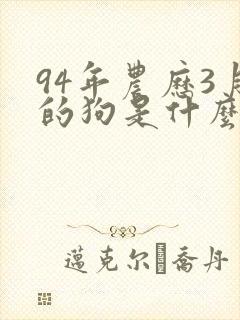 94年農歷3月
的狗是什麼
邁克尔 喬丹